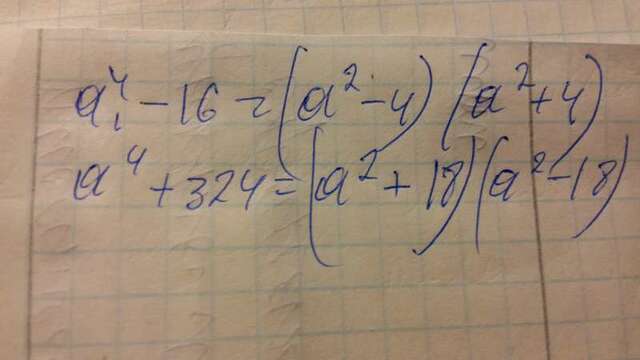 a⁴ - 16 = (a² - 4)(a² + 4)
a⁴ + 324 = (a² + 18)(a² - 18)